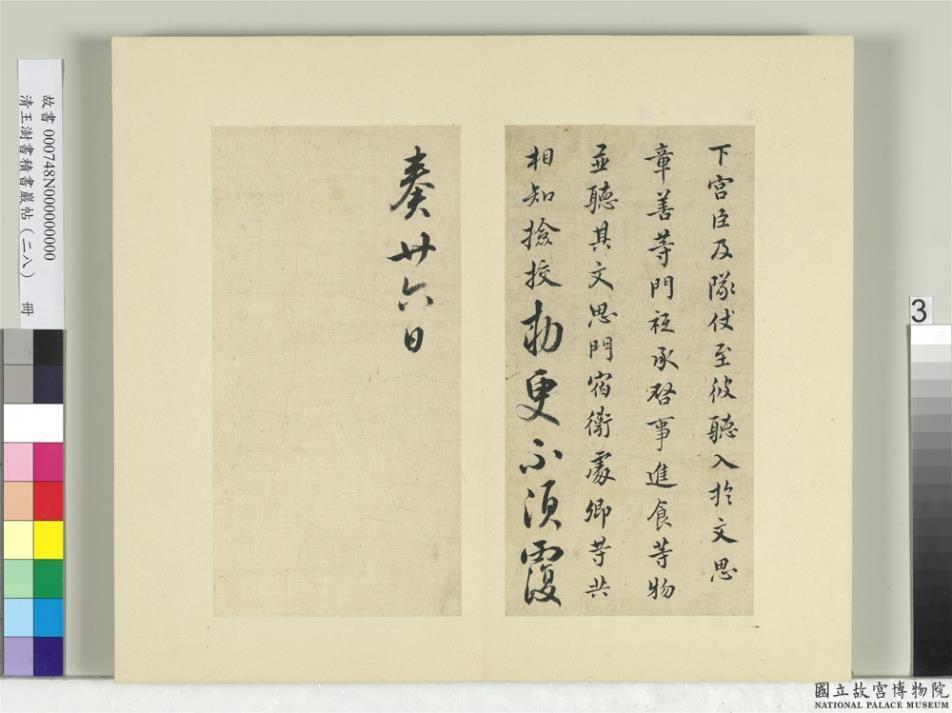 下宮臣及隊仗至彼聽入於文思
章善等門祗承啓事進食等物
並聽其文思門宿衛處卿等共
相知撿挍勅更不須覆
奏廿六日
故書 000748N000000000
清王澍書積書巖帖（二八） 冊
3
國立故宮博物院
NATIONAL PALACE MUSEUM